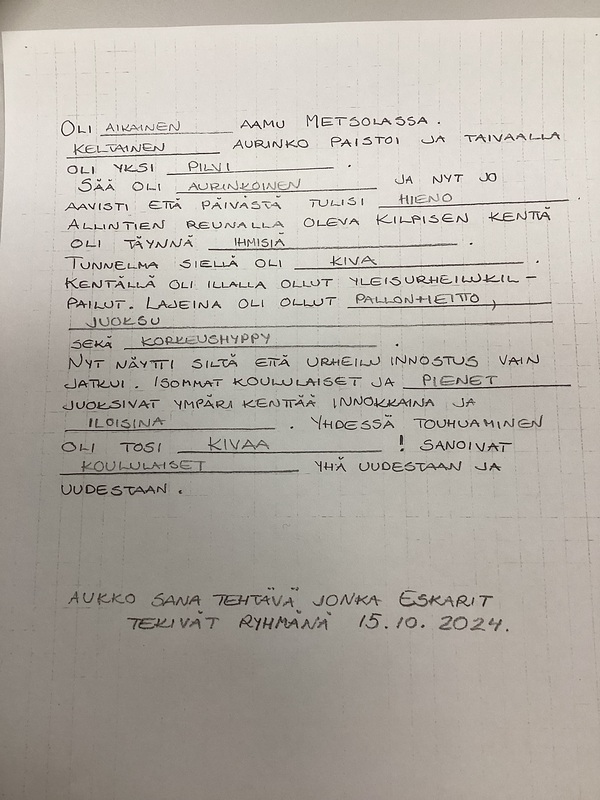 OLI AIKAINEN AAMU METSOLASSA.
KELTAINEN AURINKO PAISTOI JA TAIVAALLA
OLI YKSI PILVI.
SÄÄ OLI AURINKOINEN JA NYT JO
AAVISTI ETTÄ PÄIVÄSTÄ TULISI HIENO.
ALLINTIEN REUNALLA OLEVA KILPISEN KENTTÄ
OLI TÄYNNÄ IHMISIÄ.
TUNNELMA SIELLÄ OLI KIVA.
KENTÄLLÄ OLI ILLALLA OLLUT YLEISURHEILUKIL-
PAILUT. LAJEINA OLI OLLUT PALLONHEITTO,
JUOKSU
SEKÄ KORKEUSHYPPY.
NYT NÄYTTI SILTÄ ETTÄ URHEILU INNOSTUS VAIN
JATKUI. ISOMMAT KOULULAISET JA PIENET
JUOKSIVAT YMPÄRI KENTTÄÄ INNOKKAINA JA
ILOISINA. YHDESSÄ TOUHUAMINEN
OLI TOSI KIVAA! SANOIVAT
KOULULAISET YHÄ UUDESTAAN JA
UUDESTAAN.
AUKKO SANA TEHTÄVÄ JONKA ESKARIT
TEKIVÄT RYHMÄNÄ 15.10. 2024.